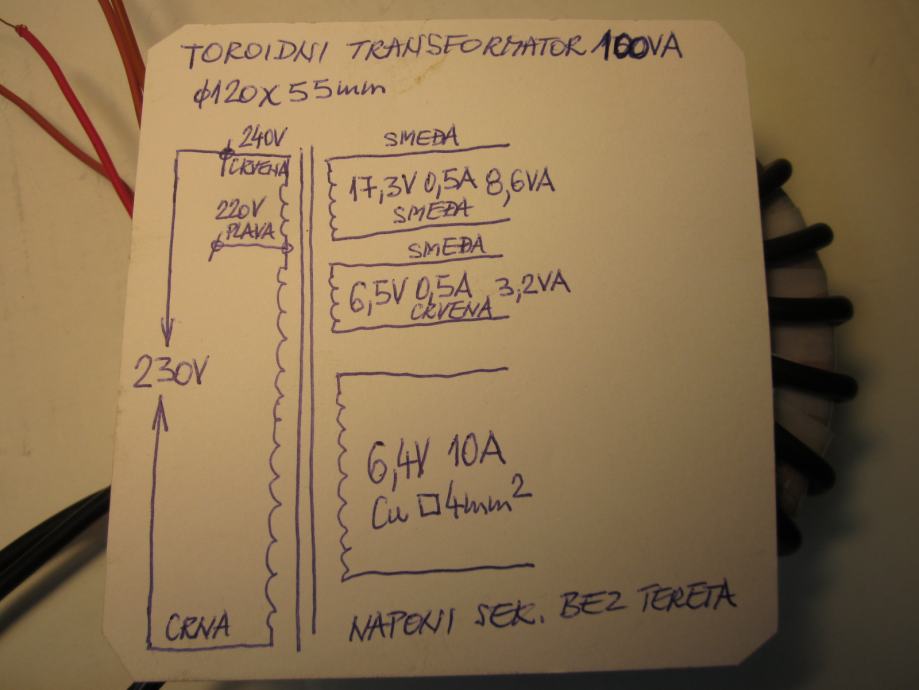 TOROIDNI TRANSFORMATOR 100VA
φ120x55mm
240V
CRVENA
220V
PLAVA
230V
CRNA
SMEĐA
17,3V 0,5A 8,6VA
SMEĐA
SMEĐA
6,5V 0,5A 3,2VA
CRVENA
6,4V 10A
Cu □4mm²
NAPONI SEK. BEZ TERETA